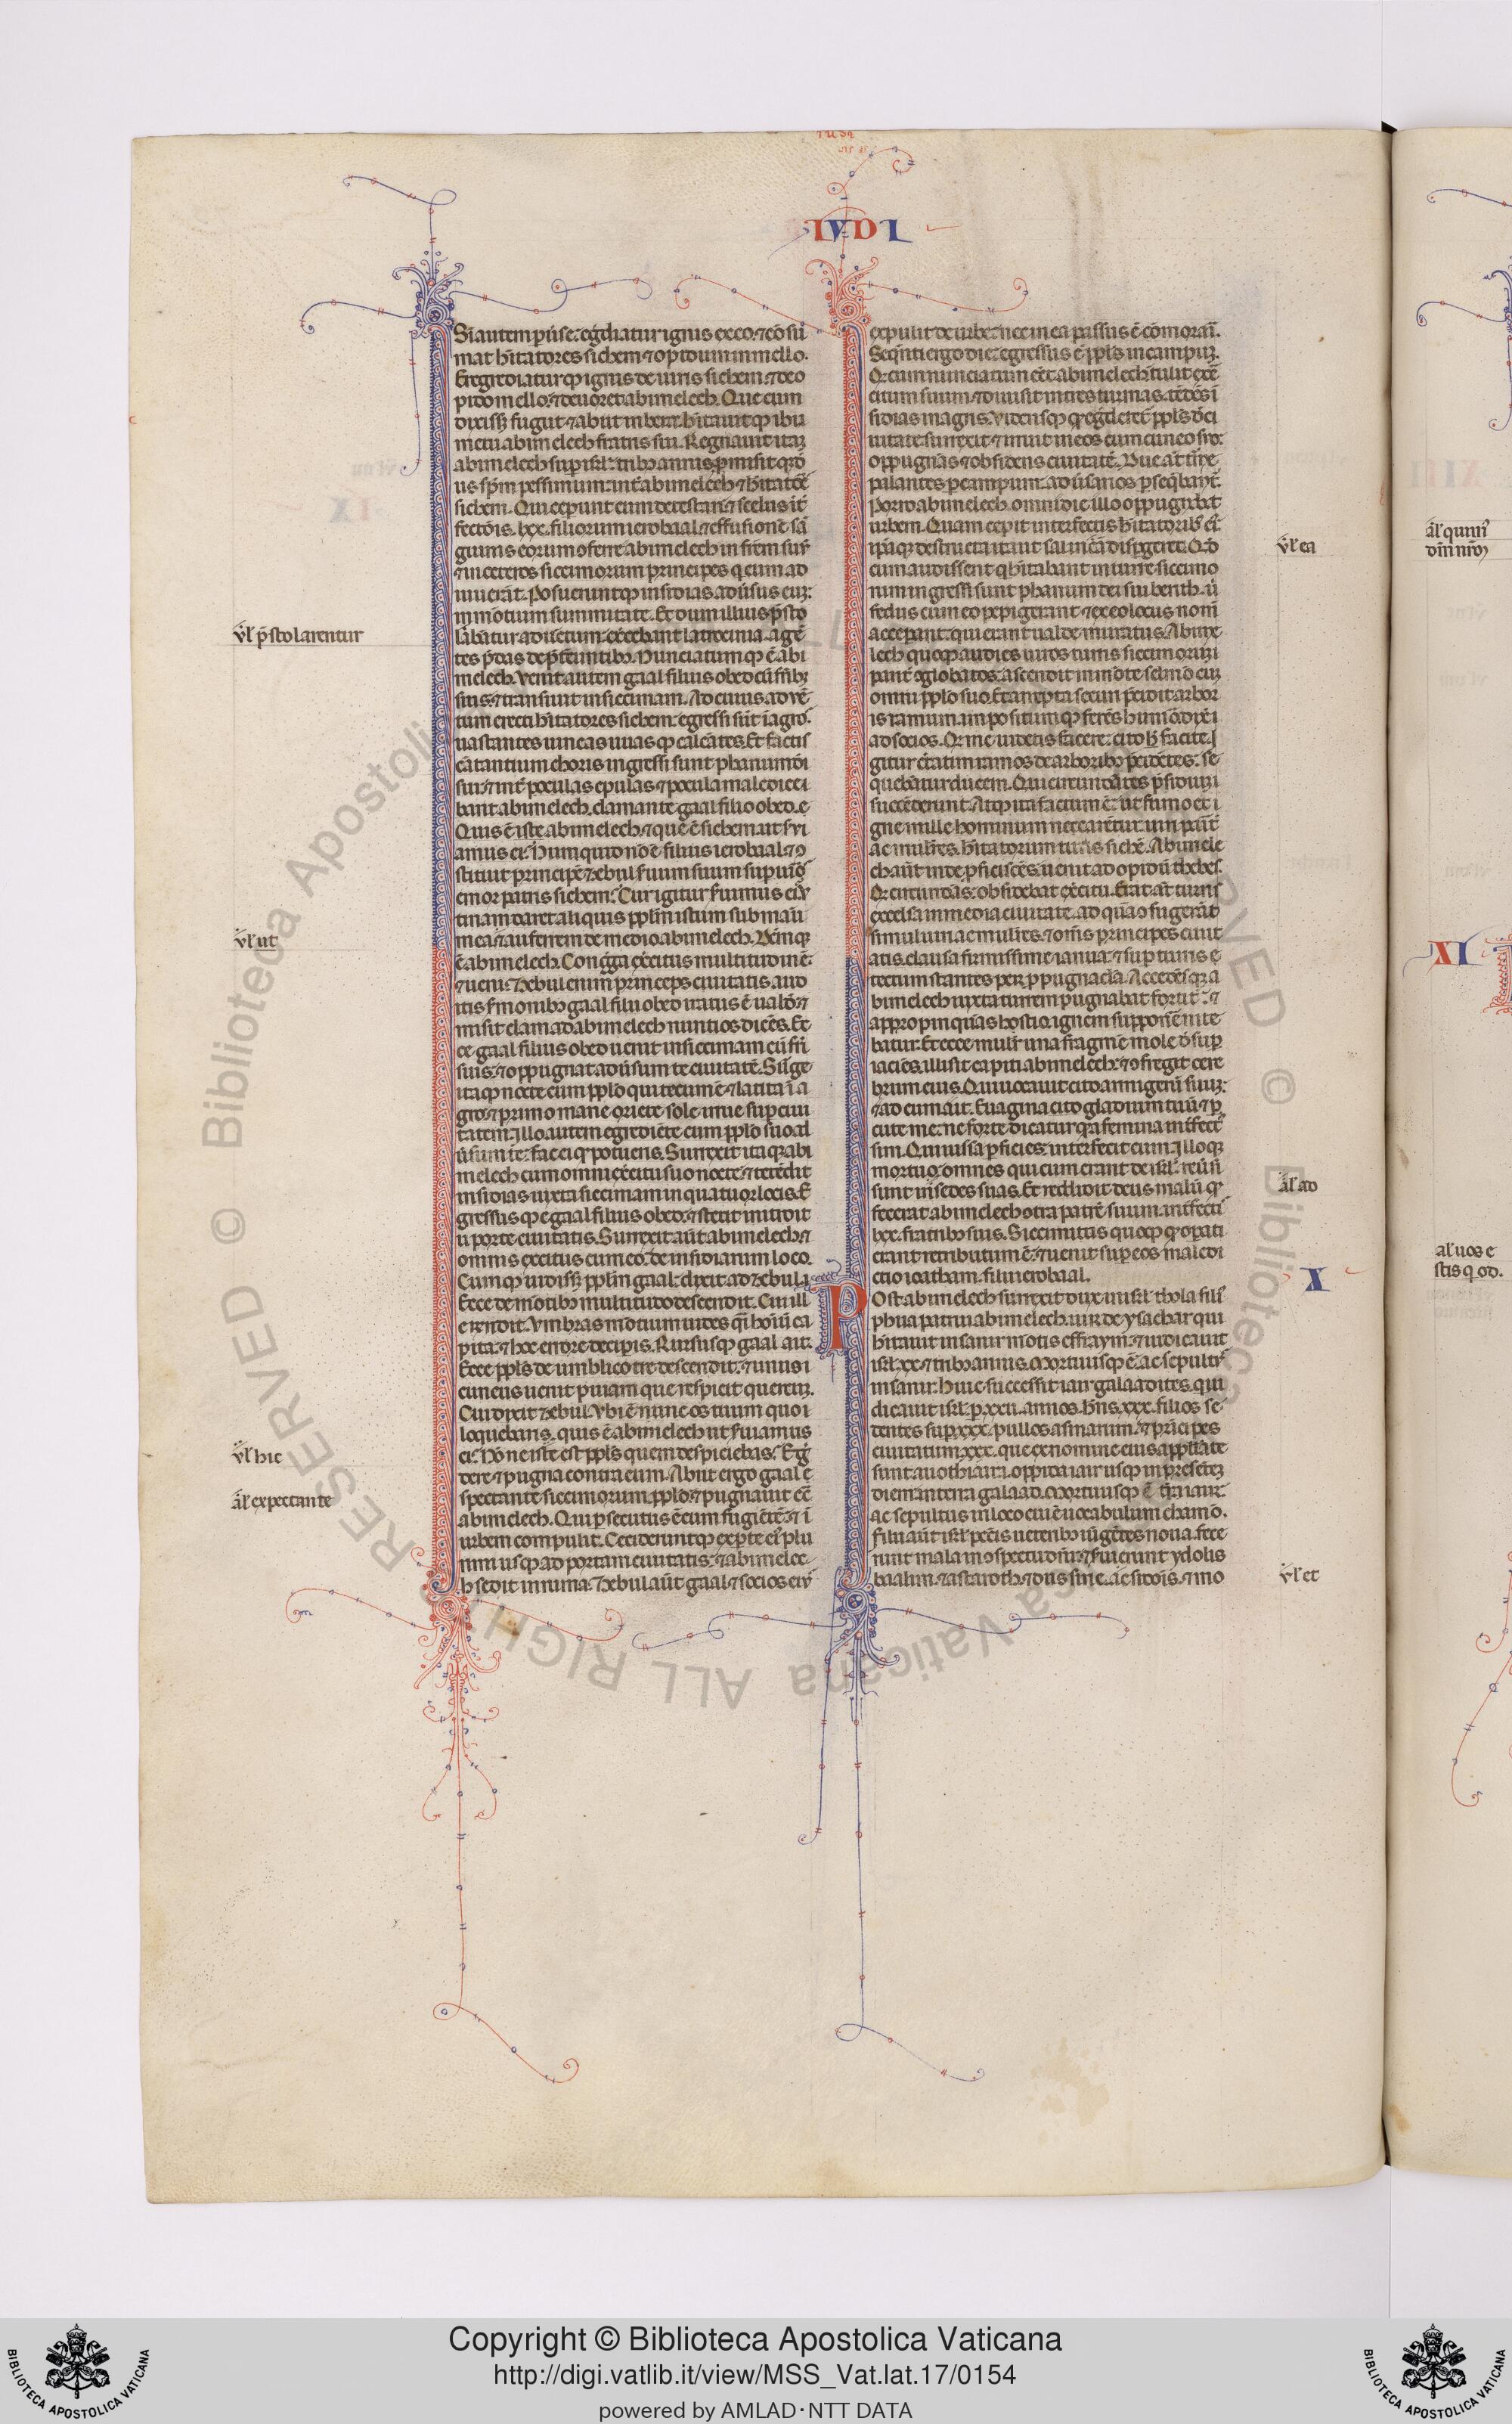 IVDI
Sin autem ꝑuerse: egrediatur ignis ex eo. ⁊ cōsu
mat hītatores sichem ⁊ opidum in mello.
Et egrediatur qꝫ ignis de uiris sichem. ⁊ de o
pido mello. ⁊ deuoret abimelech. Que cum
dixiss; fugit. ⁊ abiit in bera. hītauit qꝫ ibi
metu abimelech fratris sui. Regnauit itaqꝫ
abimelech suꝑ isrl̄: tribꝫ annis.
sp̄m pessimum: int̄ abimelech ⁊ hītatores
sichem. Qui ceperunt eum detestari. ⁊ scelus int̄
fectōis .lxx. filiorum ierobaal. ⁊ effusionē sā
guinis eorum oferre abimelech in fr̄em suū
⁊ in ceteros siccimorum principes q̄ eum ad
iuuerāt. Posuerunt qꝫ insidias aduersus eum:
in mōtium summitate. Et dum illius p̄sto
labātur aduētum: exercebant latrocinia. agē
tes p̄das de p̄tereuntibꝫ. Nunciatum qꝫ ē abi
melech. Venit autem gaal filius obed cū fr̄ibꝫ
suis. ⁊ transiuit in siccimam. Ad cuius aduē
tum erecti hītatores sichem: egressi sūt ī agros.
uastantes uineas. uuas qꝫ calcātes. Et factis
cātantium choris: ingressi sunt phanum dei
sui. ⁊ int̄ poculas epulas. ⁊ pocula maledice
bant abimelech. clamante gaal filio obed.
Quis ē iste abimelech. ⁊ que ē sichem: ut serui
amus ei? Numquid nō ē filius ierobaal. ⁊
stituit principē zebul seruum suum suꝑ uiros
emor patris sichem? Cur igitur seruimus ei?
tinam daret aliquis ppl̄m istum sub manu
mea. ⁊ auferrem de medio abimelech. Dcm̄ qꝫ
ē abimelech. Congrega exercitus multitudinē:
⁊ ueni. Zebul enim princeps ciuitatis aud
itis sermonibꝫ gaal filii obed. iratus ē ualde. ⁊
misit clam ad abimelech nuntios dicēs. Ec
ce gaal filius obed uenit in siccimam cū fr̄i
suis. ⁊ oppugnat aduersum te ciuitatē. Surge
itaqꝫ nocte cum ppl̄o qui tecum ē. ⁊ latita ī a
gro. ⁊ primo mane oriēte sole. irrue suꝑ ciui
tatem. Illo autem egrediēte cum ppl̄o suo ad
uersum te: fac ei qd̄ potueris. Surrexit itaqꝫ abi
melech cum omni exercitu suo nocte. ⁊ tetēdit
insidias iuxta siccimam in quatuor locis. E
gressus qꝫ ē gaal filius obed. ⁊ stetit in introit
u porte ciuitatis. Surrexit aūt abimelech. ⁊
omnis exercitus cum eo: de insidiarum loco.
Cum qꝫ uidiss; ppl̄m gaal: dixit ad zebul.
Ecce de mōtibꝫ multitudo descendit. Cui ill
e rn̄dit. Vmbras mōtium uides q̄i hoīū ca
pita. ⁊ hoc errore deciperis. Rursus qꝫ gaal ait.
Ecce ppl̄s de umblico tre descendit: ⁊ unus
cuneus uenit ꝑ uiam que respicit quercum.
Cui dixit zebul. Vbi ē nunc os tuum quo
loquebaris. quis ē abimelech ut seruiamus
ei? Nonne iste est ppl̄s quem despiciebas? Egre
dere. ⁊ pugna contra eum. Abiit ergo gaal e
spectante siccimorum ppl̄o. ⁊ pugnauit cō
abimelech. Qui ꝑsecutus ē eum fugiētē. ⁊ ī
urbem compulit. Ceciderunt qꝫ ex ꝑte ei plu
rimi usqꝫ ad portam ciuitatis. ⁊ abimelec
h sedit in ruma. Zebul aūt gaal ⁊ socios eius
expulit de urbe: nec in ea passus ē cōmorari.
Seqn̄ti ergo die: egressus ē ppl̄s in campum.
Qd̄ cum nunciatum eēt abimelech: tulit exer
citum suum. ⁊ diuisit in tres turmas. tēdēs ī
sidias in agris. Vidensqꝫ qd̄ egrederet̄ ppl̄s de ci
uitate: surrexit. ⁊ irruit in eos cum cuneo suo:
oppugnās ⁊ obsidens ciuitatē. Due aūt turme
palantes ꝑ campum: aduersarios ꝑseqbant̄.
Porro abimelech omni die illo oppugnabat
urbem. Quam cepit interfectis hītatoribꝫ ei:
ipāqꝫ destructa. ita ut sal in ea dispgeret. Qd̄
cum audissent q̄ hītabant in turre siccimo
rum ingressi sunt phanum dei sui berith. u
fedus cum eo pepigerant. ⁊ ex eo locus nomen
acceperant. qui erant ualde muratus. Abime
lech quoqꝫ audiēs uiros turris siccimorum
parit̄ ⁊globatos: ascendit in mōtē selmō cum
omni ppl̄o suo. Et arrepta securi: p̄cidit arbor
is ramum. impositum qꝫ ferēs humō: dixit
ad socios. Qd̄ me uidetis facere: cito h̄ facite. I
gitur certatim ramos de arboribꝫ p̄cidētes: se
quebātur ducem. Qui circumdātes p̄sidium
succēderunt. Atqꝫ ita factum ē: ut fumo et i
gne mille hominum necarētur. uiri parit̄
ac mulieres. hītatorum turris sichē. Abimele
ch aūt inde ꝓficiscēs: uenit ad opidū thebes.
Qd̄ circumdās: obsidebat exercitu. Erat aūt turris
excelsa in media ciuitate. ad quā ⁊fugerāt
simul uiri ac mulieres. ⁊ om̄s principes ciuit
atis. clausa firmissime ianua: ⁊ suꝑ turris
tectum stantes per ꝓpugnacl̄a. Accedēsqꝫ a
bimelech iuxta turrem pugnabat fortit̄. ⁊
appropinquās hostio: ignem supponē nite
batur. Et ecce mulier una fragmē mole desuper
iaciēs. illisit capiti abimelech. ⁊ ⁊fregit cere
brum eius. Qui uocauit cito armigerū suum:
⁊ ad eum ait. Euagina cito gladium tuū. ⁊ ꝑ
cute me: ne forte dicatur qd̄ a femina interfect
sim. Qui iussa ꝑficiēs: interfecit eum. Illo qꝫ
mortuo: omnes qui cum erant de isrl̄: reuersi
sunt in sedes suas. Et reddidit deus malū qd̄
fecerat abimelech ⁊tra patrē suum. interfectis
lxx. fratribꝫ suis. Siccimitis quoqꝫ qd̄ opati
erant retributum ē. ⁊ uenit suꝑ eos maledi
ctio ioatham: filii ierobaal.
Post abimelech surrexit dux in isrl̄ thola filius
phua patrui abimelech. uir de ysachar. qui
hītauit in sanir mōtis effraym. ⁊ iudicauit
isrl̄ .xx. ⁊ tribꝫ annis. Mortuusqꝫ ē: ac sepultus
in sanir. Huic successit iair galaadites. qui
iudicauit isrl̄ ꝑ .xxii. annos. hn̄s .xxx. filios se
dentes suꝑ .xxx. pullos asinarum. ⁊ principes
ciuitatum .xxx. que ex nomine eius appll̄ate
sunt auothiair. oppida iair usqꝫ in presentem
diem in terra galaad. Mortuusqꝫ ē iair:
ac sepultus in loco cui ē uocabulum chamō.
Filii aūt isrl̄ peccatis ueteribꝫ iūgētes noua. fece
runt mala in ⁊spectu dn̄i: ⁊ seruierunt ydolis
baalim. ⁊ astaroth. ⁊ diis sirie. ac sidōis. ⁊ mo
vl̄ p̄stolarentur
vl̄ ut
vl̄ hic
al̄ expectante
vl̄ ea
al̄ ad
X
vl̄ et
al̄ quini
XI
al̄ uos e
stis q od.
© Biblioteca Apostolica Vaticana ALL RIGHTS RESERVED
Copyright © Biblioteca Apostolica Vaticana
http://digi.vatlib.it/view/MSS_Vat.lat.17/0154
powered by AMLAD·NTT DATA
BIBLIOTECA APOSTOLICA VATICANA
BIBLIOTECA APOSTOLICA VATICANA